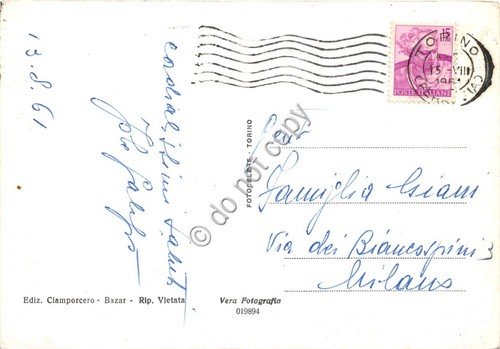 13.8.61
cordialissimi saluti
TORINO
15-VIII
1961
15
POSTE ITALIANE
FOTOCELERE - TORINO
Famiglia Giani
Via dei Biancospini
Milano
Ediz. Ciamporcero - Bazar - Rip. Vietata
Vera Fotografia
019894
do not copy